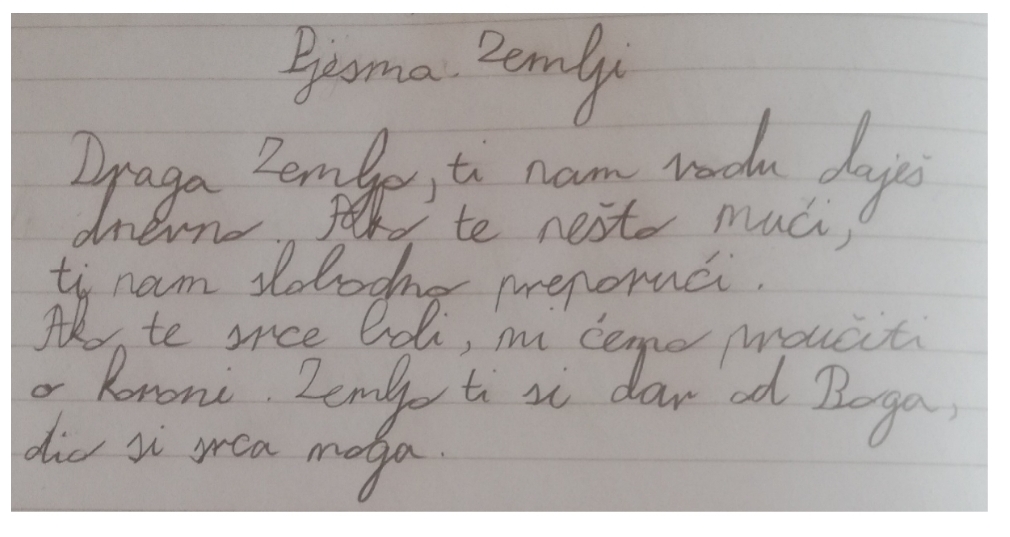 Pjesma Zemlji
Draga Zemljo, ti nam vodu daješ
dnevno. Ako te nešto mući,
ti nam slobodno preporući.
Ako te srce boli, mi ćemo proučiti
o koroni. Zemljo ti si dar od Boga,
dio si srca moga.